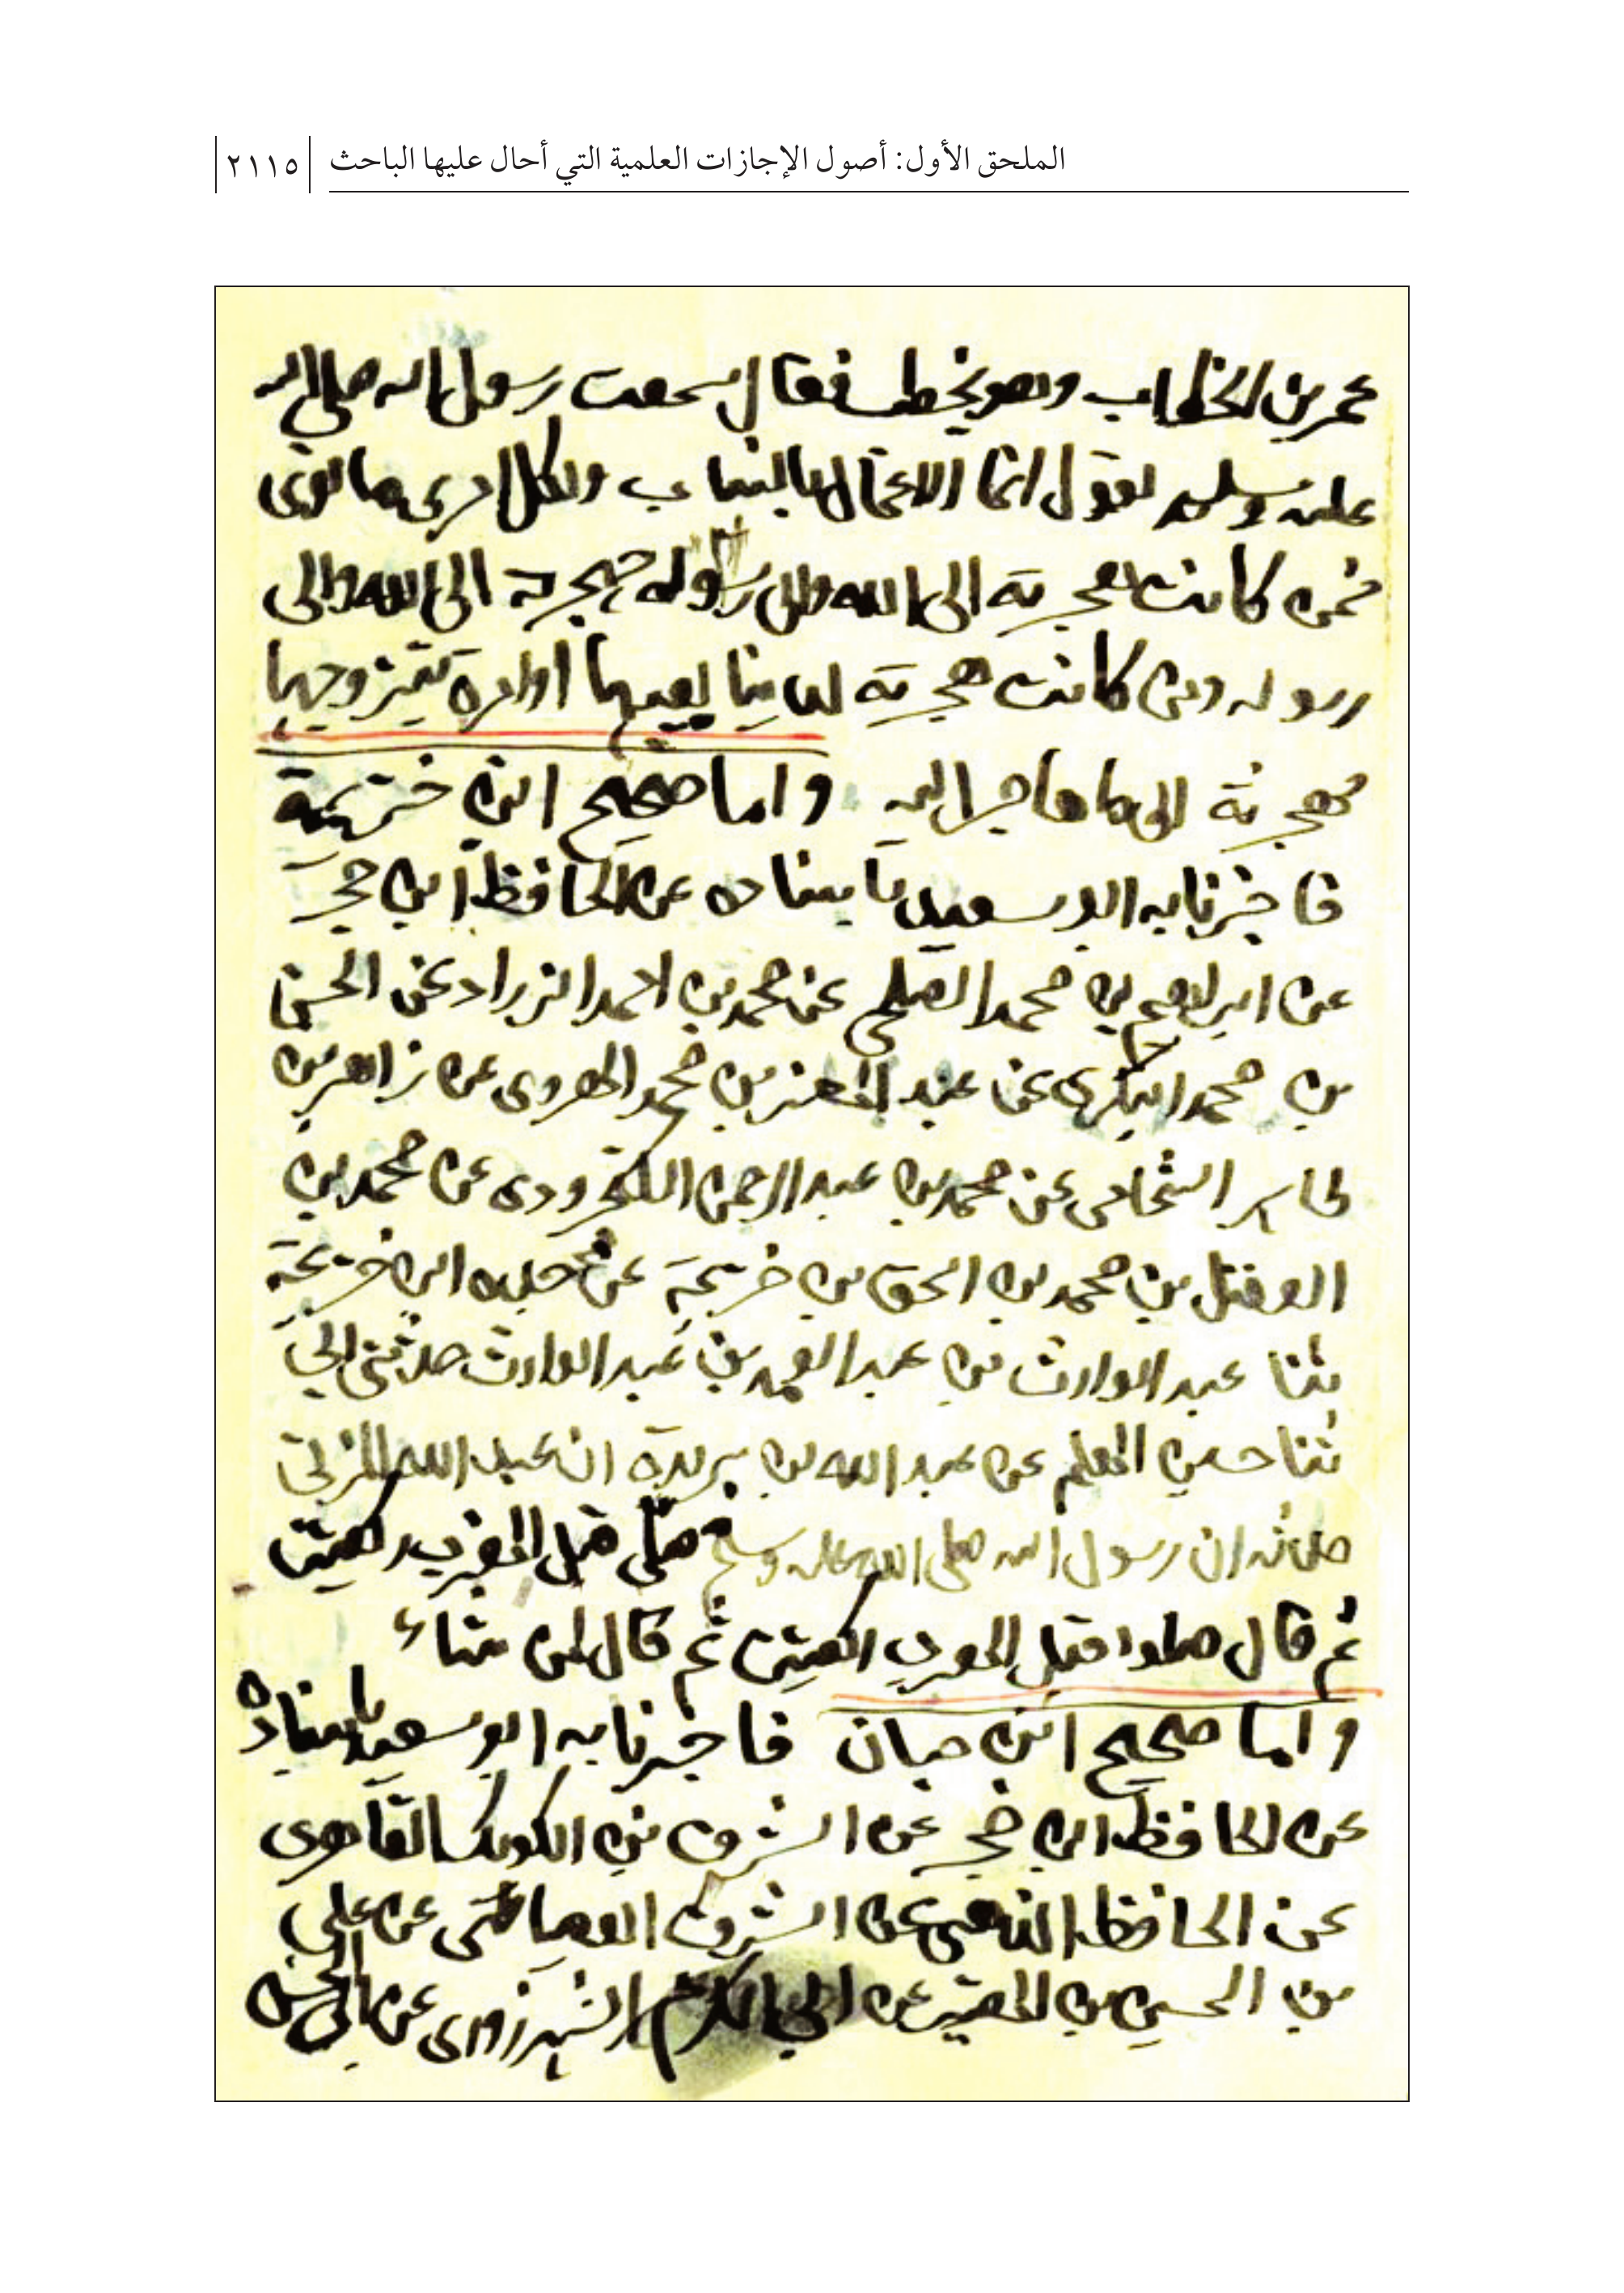 الملحق الأول: أصول الإجازات العلمية التي أحال عليها الباحث ٢١١٥
عمر بن الخطاب وهو يخطب فقال سمعت رسول الله صلى الله
عليه وسلم يقول انما الاعمال بالنيات ولكل امرى ما نوى
فمن كانت هجرته الى الله والى رسوله فهجرته الى الله والى
رسوله ومن كانت هجرته لدنيا يصيبها او امرة يتزوجها
فهجرته الى ما هاجر اليه واما صحيح ابن خزيمة
فاخبرنا به ابو سعيد باسناده عن الحافظ ابن حجر
عن ابراهيم بن محمد عن محمد بن احمد الزراد عن الحسن
بن محمد البكري عن عبد المعز بن محمد الهروى عن زاهر بن
طاهر الشحامى عن محمد بن عبد الرحمن الكنجرودى عن محمد بن
الفضل بن محمد بن اسحق بن خزيمة عن جده ابن خزيمة
ثنا عبد الوارث بن عبد الصمد بن عبد الوارث حدثني ابي
ثنا حسين المعلم عن عبد الله بن بريدة ان عبد الله المزني
حدثه ان رسول الله صلى الله عليه وسلم صلى قبل المغرب ركعتين
ثم قال صلوا قبل المغرب ركعتين ثم قال لمن شاء
واما صحيح ابن حبان فاخبرنا به ابو سعيد باسناده
عن الحافظ ابن حجر عن الشرف بن الكويك القاهرى
عن الحافظ الذهبي عن الشرف عن علي
بن الحسين بن المقير عن ابي الكرم الشهرزورى عن ابي الحسين